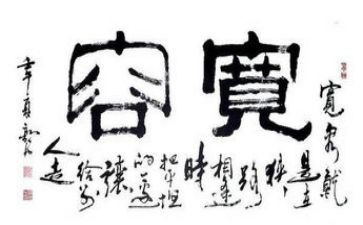 寬容
寬容就
是在
狹
路
相逢
時
把平坦
的
讓
給別
人走